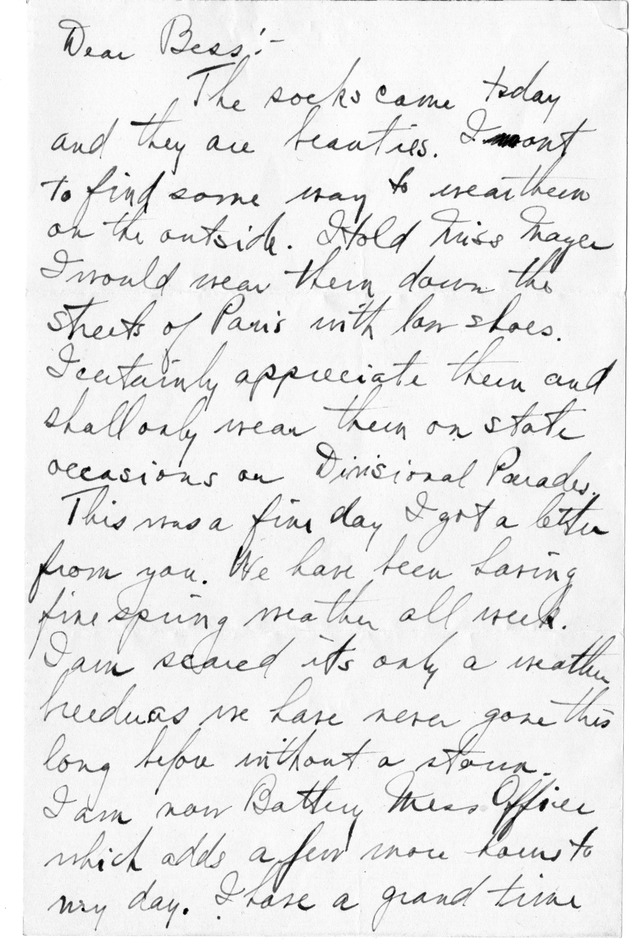 Dear Bess:-
The socks came today
and they are beauties. I want
to find some way to wear them
on the outside. I told Miss Mayer
I would wear them down the
streets of Paris with low shoes.
I certainly appreciate them and
shall only wear them on state
occasions or Divisional Parades.
This was a fine day I got a letter
from you. We have been having
fine spring weather all week.
I am scared its only a weather
breeder as we have never gone this
long before without a storm.
I am now Battery Mess Officer
which adds a few more hours to
my day. I have a grand time